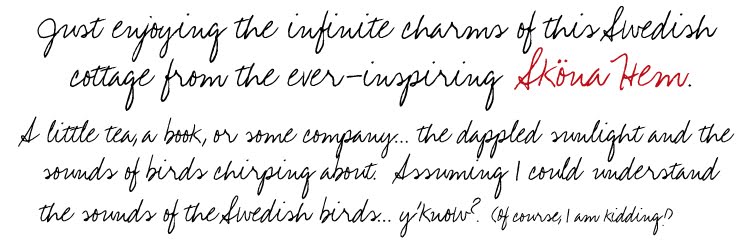 Just enjoying the infinite charms of this Swedish
cottage from the ever-inspiring Sköna Hem.
A little tea, a book, or some company... the dappled sunlight and the
sounds of birds chirping about. Assuming I could understand
the sounds of the Swedish birds... y'know?. (Of course, I am kidding!)